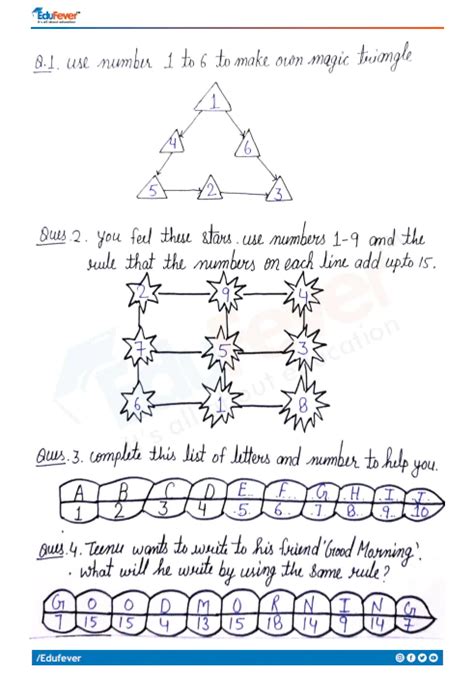 EduFever
It's all about education
Q.1. use number 1 to 6 to make own magic triangle
1
4 6
5 2 3
Ques.2. you feel these stars. use numbers 1-9 and the
rule that the numbers on each line add upto 15.
2 9 4
7 5 3
6 1 8
EduFever
It's all about education
Ques.3. complete this list of letters and number to help you.
A B C D E F G H I J
1 2 3 4 5 6 7 8 9 10
Ques.4. Teenu wants to write to his friend 'Good Morning'.
what will he write by using the same rule?
G O O D M O R N I N G
7 15 15 4 13 15 18 14 9 14 7
/Edufever